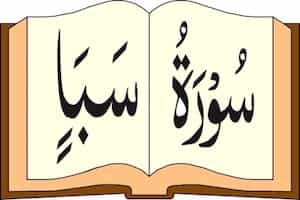 سُورَةُ سَبَإٍ